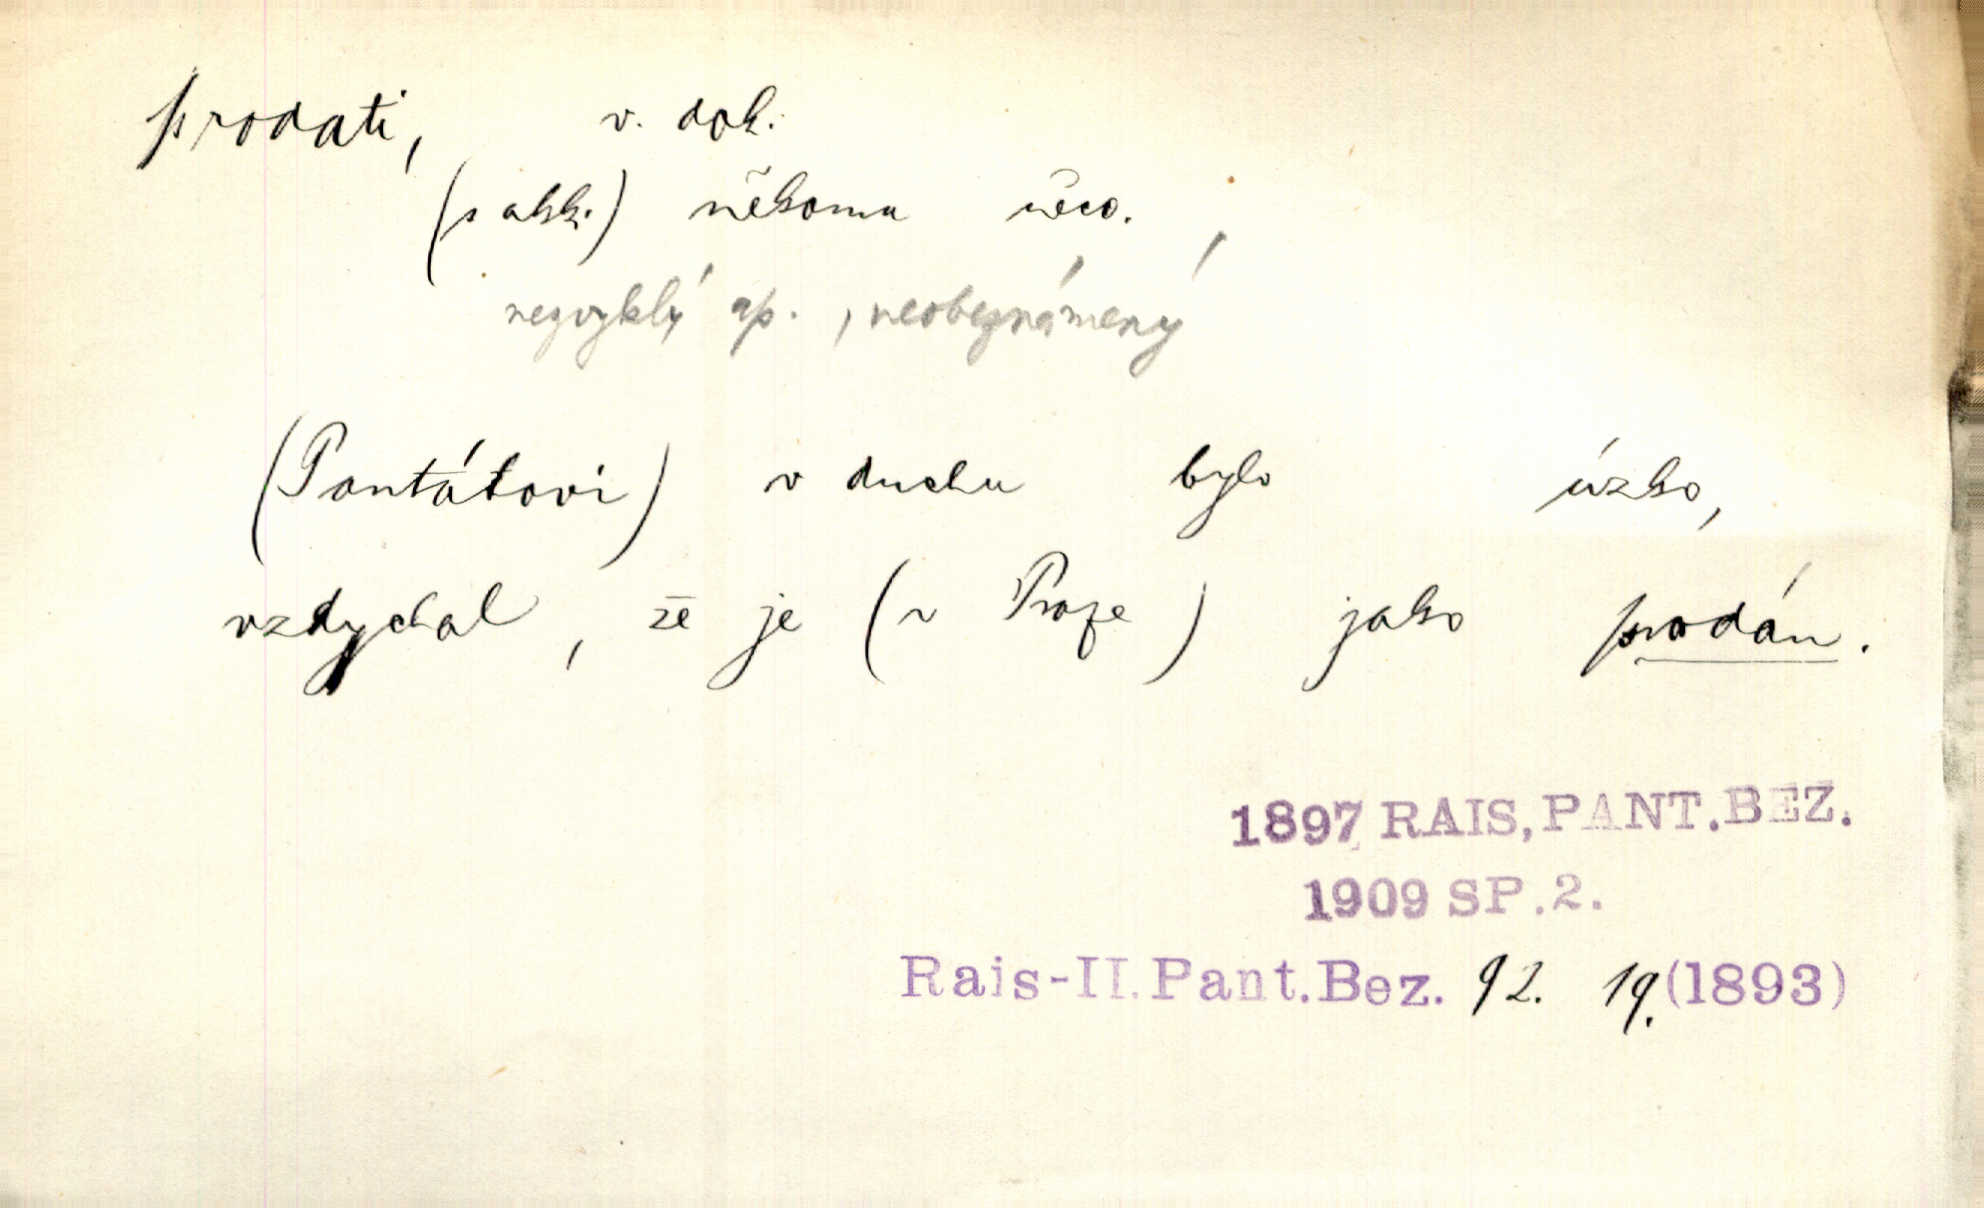 prodati, v. dok.
(s akk.) někomu něco.
nezvyklý ap., neobeznámený
(Pantátovi) v duchu bylo úzko,
vzdychal, že je (v Praze) jako prodán.
1897 RAIS, PANT. BEZ.
1909 SP. 2.
Rais-II. Pant. Bez. 92. 19. (1893)